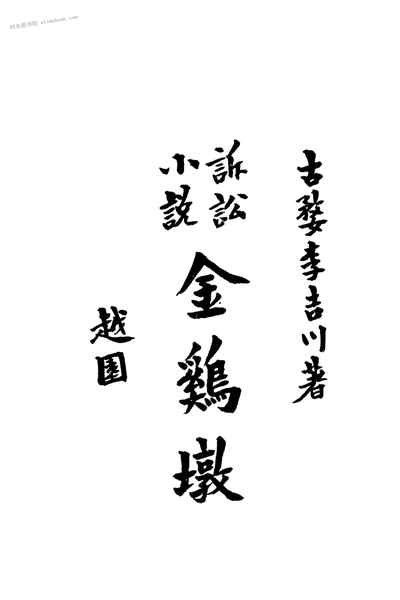 古婺李吉川著
訴訟
小説
金鷄墩
越園